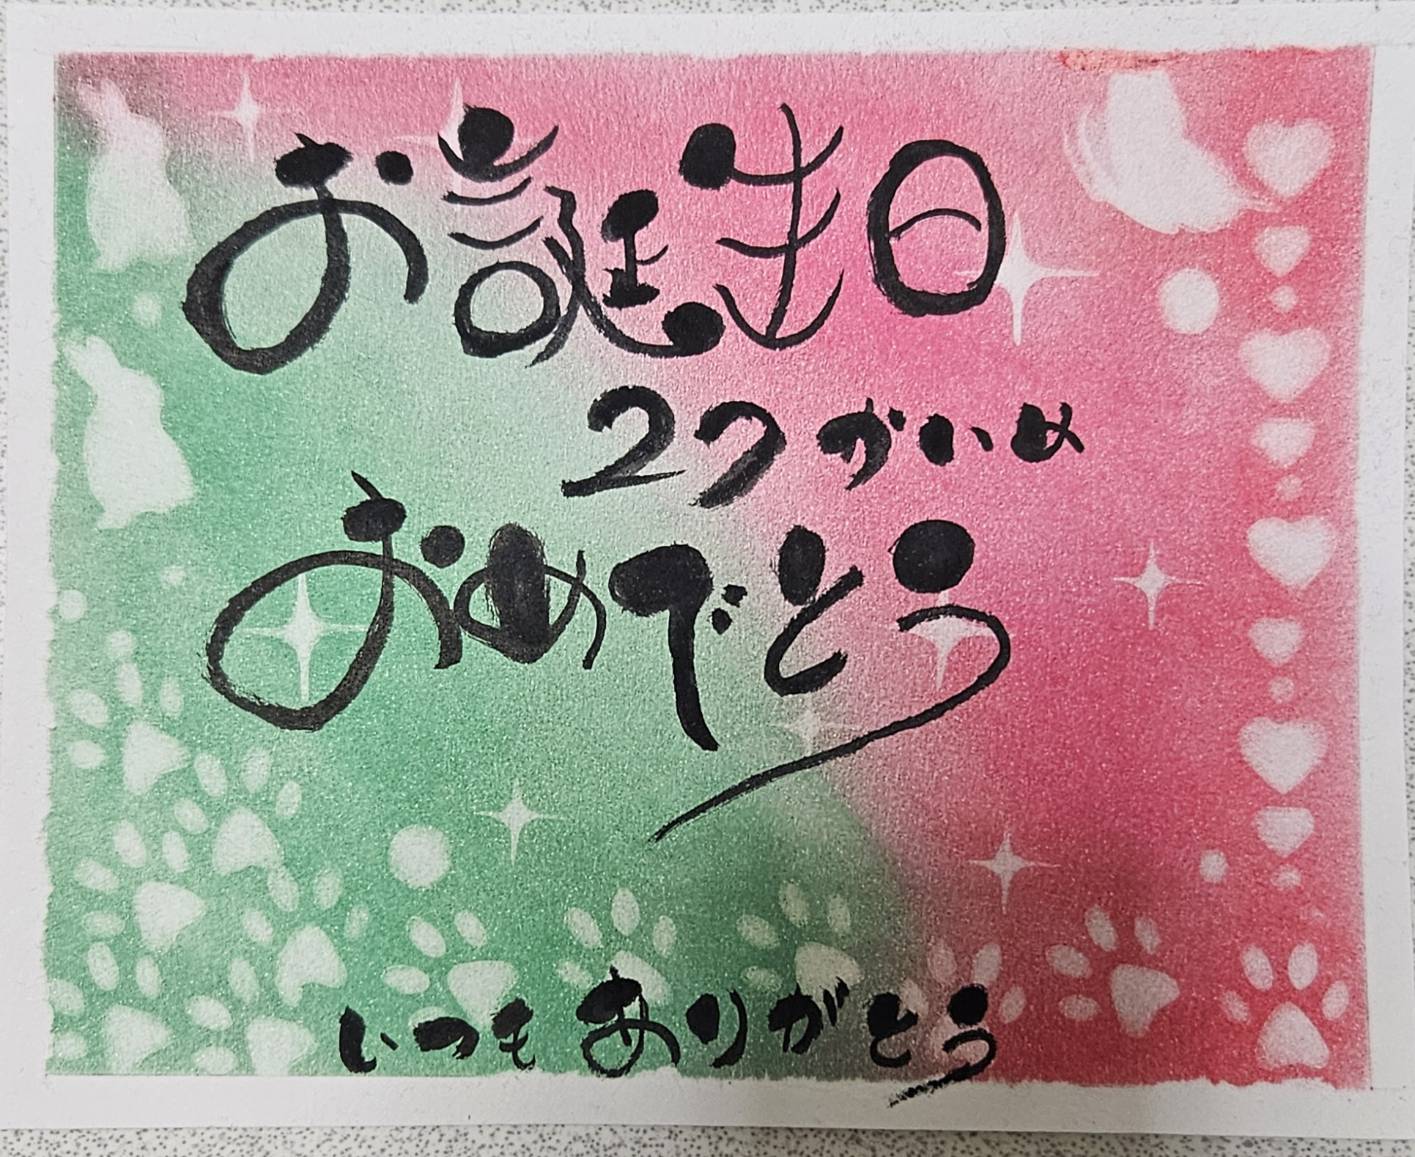 お誕生日
27かいめ
おめでとう
いつもありがとう